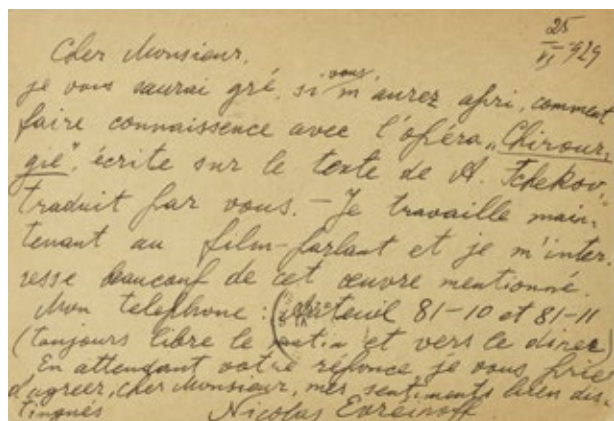 25
VI 929
Cher Monsieur,
je vous saurai gré, si vous m'aurez apri, comment
faire connaissance avec l'opéra „Chirour-
gie", écrite sur le texte de A. Tchekov,
traduit par vous. — Je travaille main-
tenant au film-parlant et je m'inter-
resse beaucoup de cet œuvre mentionné.
Mon telephone: (Auteuil 81-10 et 81-11
(toujours libre le matin et vers le diner)
En attendant votre réponce je vous prie
d'agreer, cher Monsieur, mes sentiments bien dis-
tingués
Nicolas Evreinoff